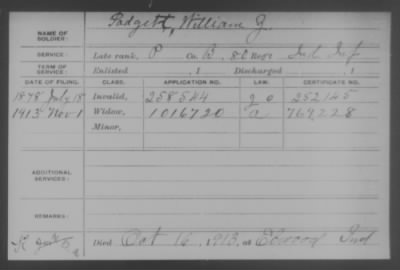 Padgett, William J.
NAME OF SOLDIER:
SERVICE: Late rank, P Co. B, 80 Regt Ind Inf
TERM OF SERVICE: Enlisted , 1 Discharged , 1
DATE OF FILING. CLASS. APPLICATION NO. LAW. CERTIFICATE NO.
1878 July 18 Invalid, 258544 252145
1913 Nov 1 Widow, 1016720 769,228
Minor,
ADDITIONAL SERVICES:
REMARKS:
Died Oct 16, 1913, at Elwood Ind